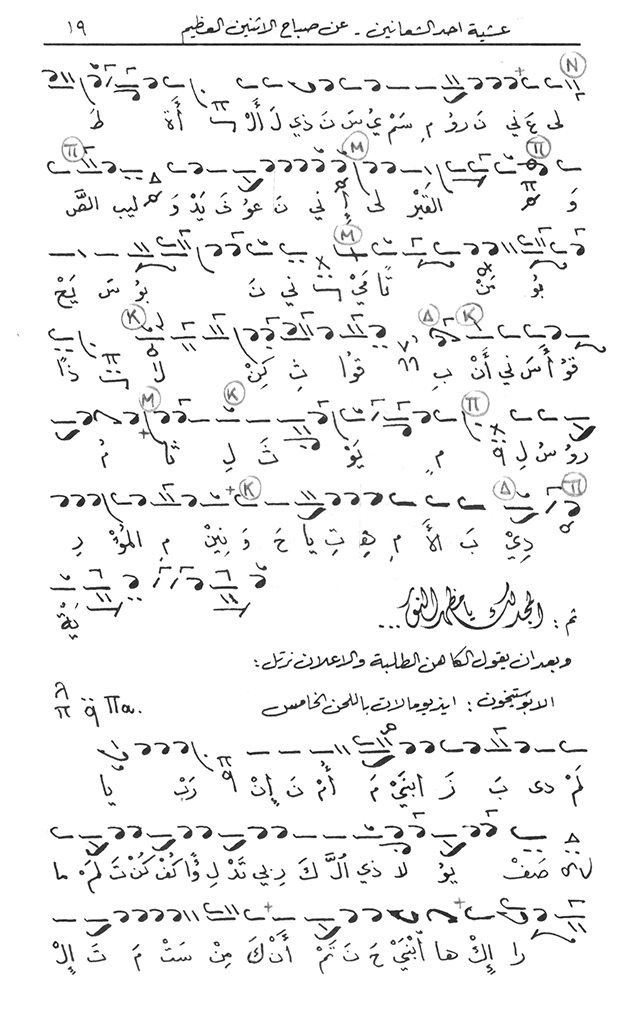 عشية احد الشعانين - عن صباح الاثنين العظيم ١٩
لى عَ ني نَ رو مِ سَمْ يُ سَ نَ ذي لَ أَلْ أَة طَ
وَ القَبْر لى ني نَ عو يَدْ وَ ليب الصَّ
بو مَنْ تًا مَيْ ني نَ بو سَ يَحْ
قو أَ سَ ني أَنْ بِ قوا ثِ كِنْ لا ذًا
رو سُ لِ مِ يَوْ ثَ لِ ثا مُ
دِيْ بَ الأَ مِ هِ تِ يا حَ وَ نينْ مِ المؤْ رِ
يَةْ
ثم: المجد لك يا مظهر النور ...
وبعد ان يقول الكاهن الطلبة والاعلان نرتل:
الابوستيخون: ايذيومالات باللحن الخامس Πa.
لَمْ دى بَ زَ ابنَيْ مَ أُمْ نَ إنْ رَبْ يا
صَفْ يوُ لا ذي الَّ كَ رِ بي تَدْ لِ ؤًا كُفْ كُنْ تَ لَمْ ما
را إِكْ ها ابْنَيْ حَ نَ تَمْ أَنْكَ مِنْ سَتْ مَ تَ إِلْ